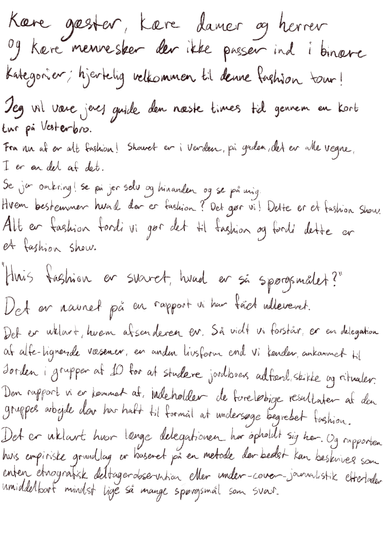 Kære gæster, kære damer og herrer
og kære mennesker der ikke passer ind i binære
kategorier; hjertelig velkommen til denne fashion tour!
Jeg vil være jeres guide den næste times tid gennem en kort
tur på Vesterbro.
Fra nu af er alt fashion! Showet er i verden, på gaden, det er alle vegne,
I er en del af det.
Se jer omkring! Se på jer selv og hinanden og se på mig
Hvem bestemmer hvad der er fashion? Det gør vi! Dette er et fashion show.
Alt er fashion fordi vi gør det til fashion og fordi dette er
et fashion show.
"Hvis fashion er svaret, hvad er så spørgsmålet?"
Det er navnet på en rapport vi har fået udleveret.
Det er uklart, hvem afsenderen er. Så vidt vi forstår, er en delegation
af alfe-lignende væsener, en anden livsform end vi kender, ankommet til
Jorden i grupper af 10 for at studere jordboers adfærd, skikke og ritualer.
Den rapport vi er kommet af, indeholder de foreløbige resultater af den
gruppes arbejde der har haft til formål at undersøge begrebet fashion.
Det er uklart hvor længe delegationen har opholdt sig her. Og rapporten
hvis empiriske grundlag er baseret på en metode der bedst kan beskrives som
enten etnografisk deltagerobservation eller under-cover-journalistik efterlader
umiddelbart mindst lige så mange spørgsmål som svar.